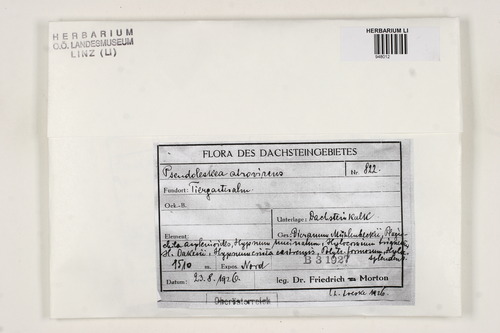 HERBARIUM
O.Ö. LANDESMUSEUM
LINZ (LI)
HERBARIUM LI
948012
FLORA DES DACHSTEINGEBIETES
Pseudoleskea atrovirens
Nr. 822.
Fundort: Tiergartenalm.
Ort.-B.
Unterlage: Dachsteinkalk
Element:
Ges.: Dicranum Mühlenbeckii, Plagio-
chila asplenioides, Hypnum uncinatum, Hylocomium
H. Oakesii, Hylocomium
splendens.
1510 m. Expos. Nord
B 3 1927
Datum: 23. 8. 1926.
leg. Dr. Friedrich Morton
L. Loeske 1926.
Oberösterreich